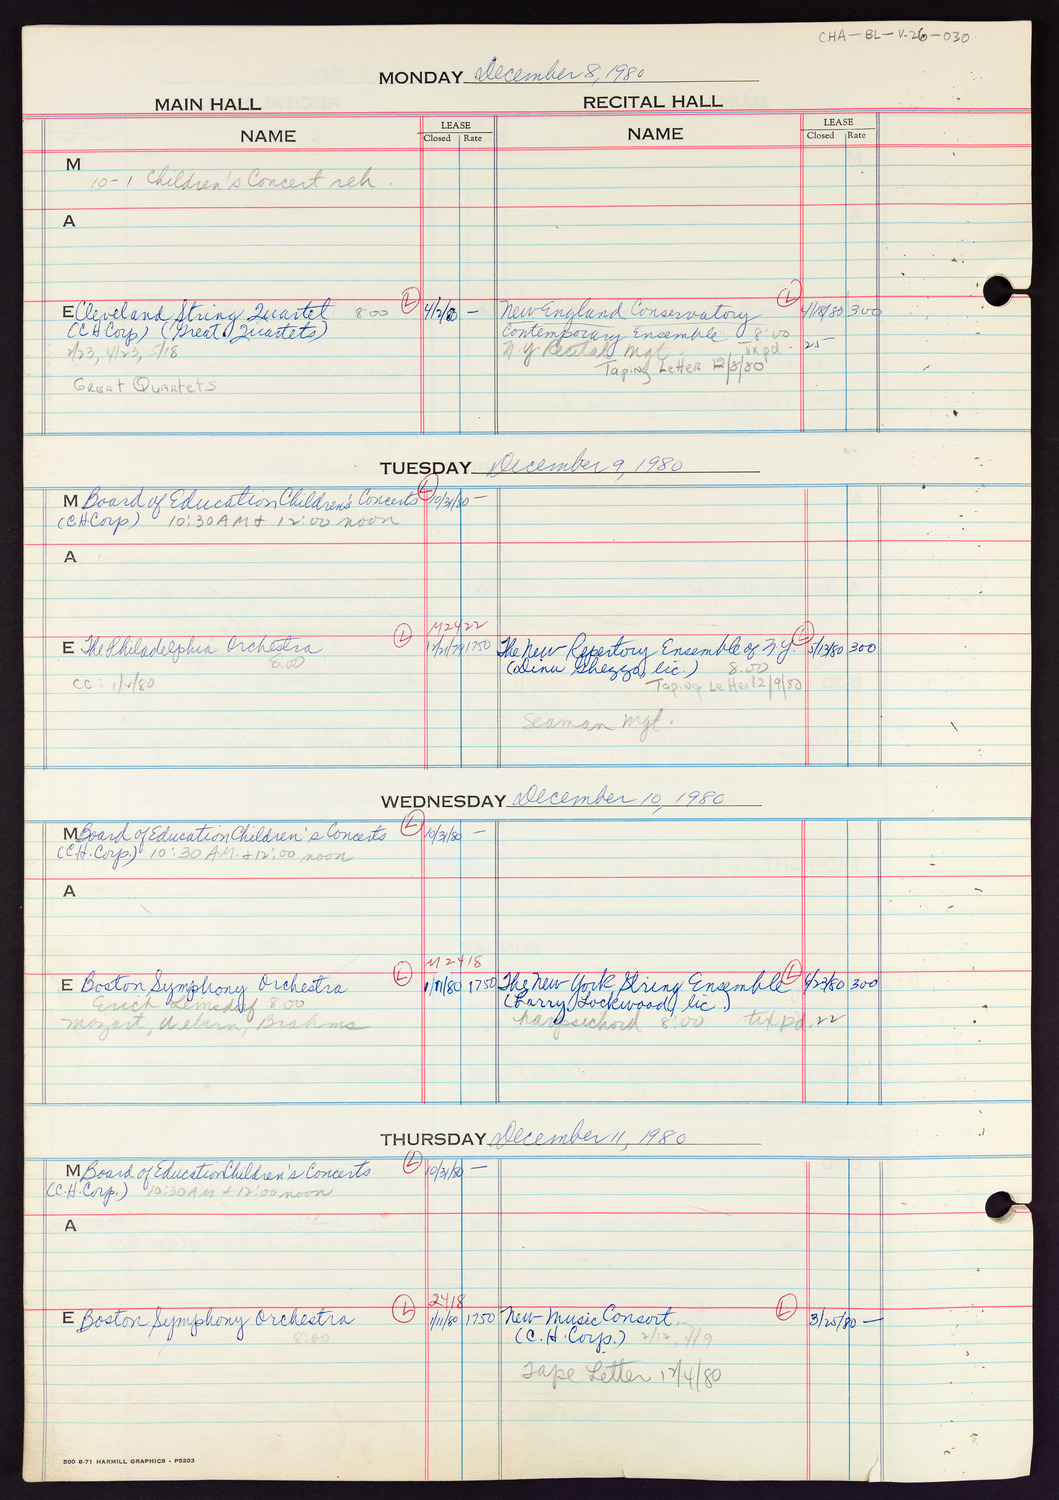 CHA-BL-V.26-030
MONDAY December 8, 1980
MAIN HALL
RECITAL HALL
NAME
LEASE
Closed Rate
NAME
LEASE
Closed Rate
M
10-1 Children's Concert reh.
A
E Cleveland String Quartet 8:00 L 4/2/80 —
(C H Corp) (Great Quartets)
2/23, 4/23, 5/18
Great Quartets
New England Conservatory L 4/18/80 300
Contemporary Ensemble 8:00
N Y Recital Mgt. tix pd. 25—
Taping Letter 12/8/80
TUESDAY December 9, 1980
M Board of Education Children's Concerts L 10/31/80 —
(C.H. Corp) 10:30 AM + 12:00 noon
A
M2422
E The Philadelphia Orchestra L 12/21/79 1750
8:00
CC: 1/2/80
The New Repertory Ensemble of N.Y. L 5/13/80 300
(Dinu Ghezzo, lic.) 8:00
Taping Letter 12/9/80
Seaman Mgt.
WEDNESDAY December 10, 1980
M Board of Education Children's Concerts L 10/31/80 —
(C.H. Corp.) 10:30 A.M. + 12:00 noon
A
M2418
E Boston Symphony Orchestra L 1/11/80 1750
Erich Leinsdorf 8:00
Mozart, Webern, Brahms
The New York String Ensemble L 4/23/80 300
(Larry Lockwood, lic.)
harpsichord 8:00 tix pd. 22
THURSDAY December 11, 1980
M Board of Education Children's Concerts L 10/31/80 —
(C.H. Corp.) 10:30 AM + 12:00 noon
A
2418
E Boston Symphony Orchestra L 1/11/80 1750
8:00
New Music Consort L 3/25/80 —
(C.H. Corp.) 2/12, 4/9
Tape Letter 12/4/80
500 8-71 HARMILL GRAPHICS - P5203